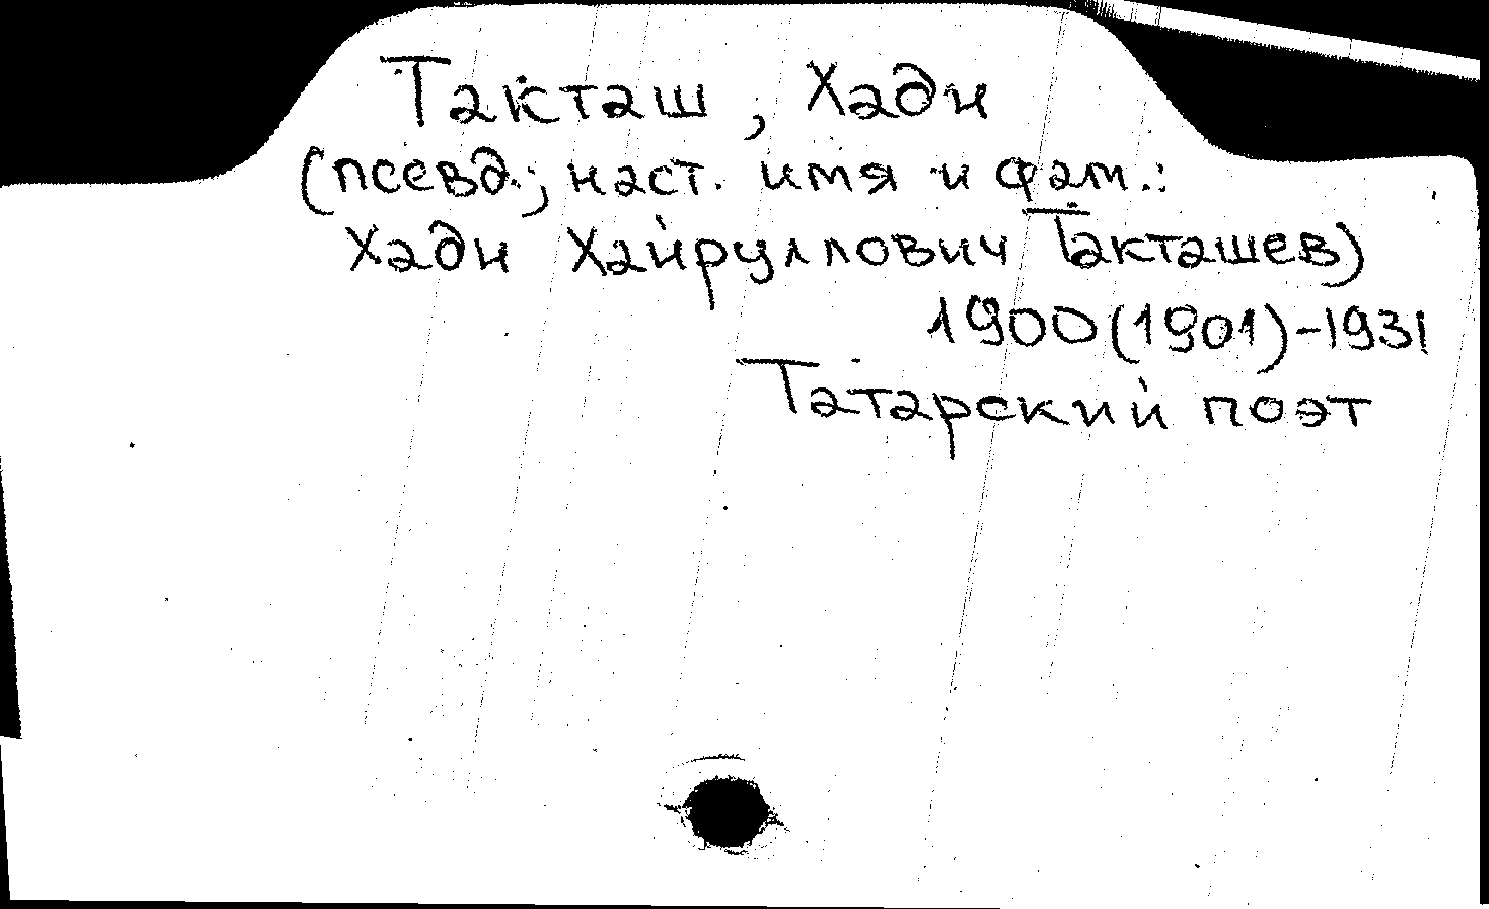 Такташ, Хади
(псевд.; наст. имя и фам.:
Хади Хайруллович Такташев)
1900(1901)-1931
Татарский поэт